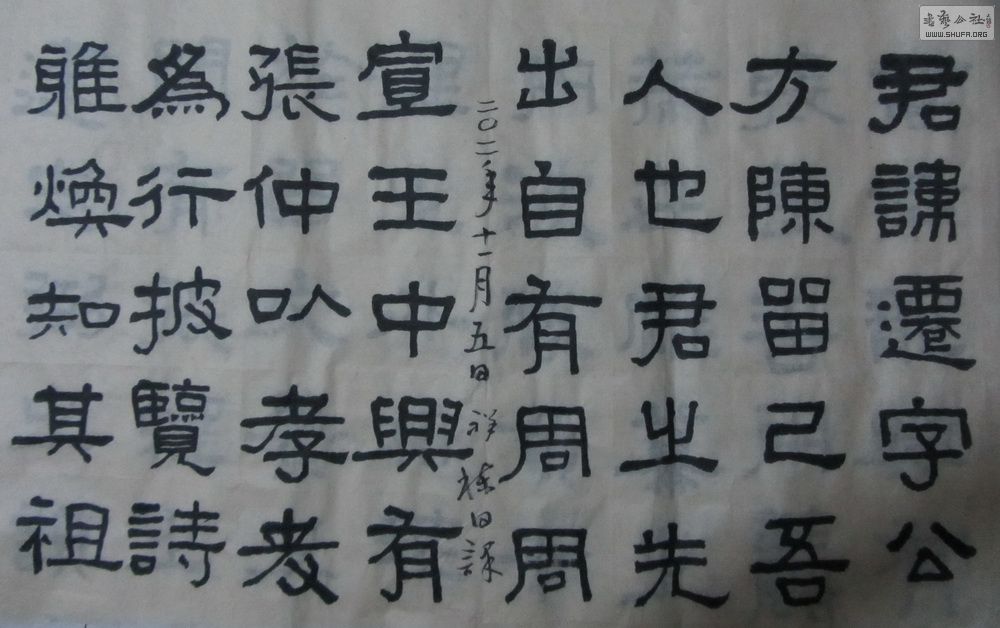 君諱遷字公
方陳留己吾
人也君之先
出自有周周
二〇二一年十一月五日祥
日課
宣王中興有
張仲以孝友
為行披覽詩
雅煥知其祖
書藝公社
WWW.SHUFA.ORG